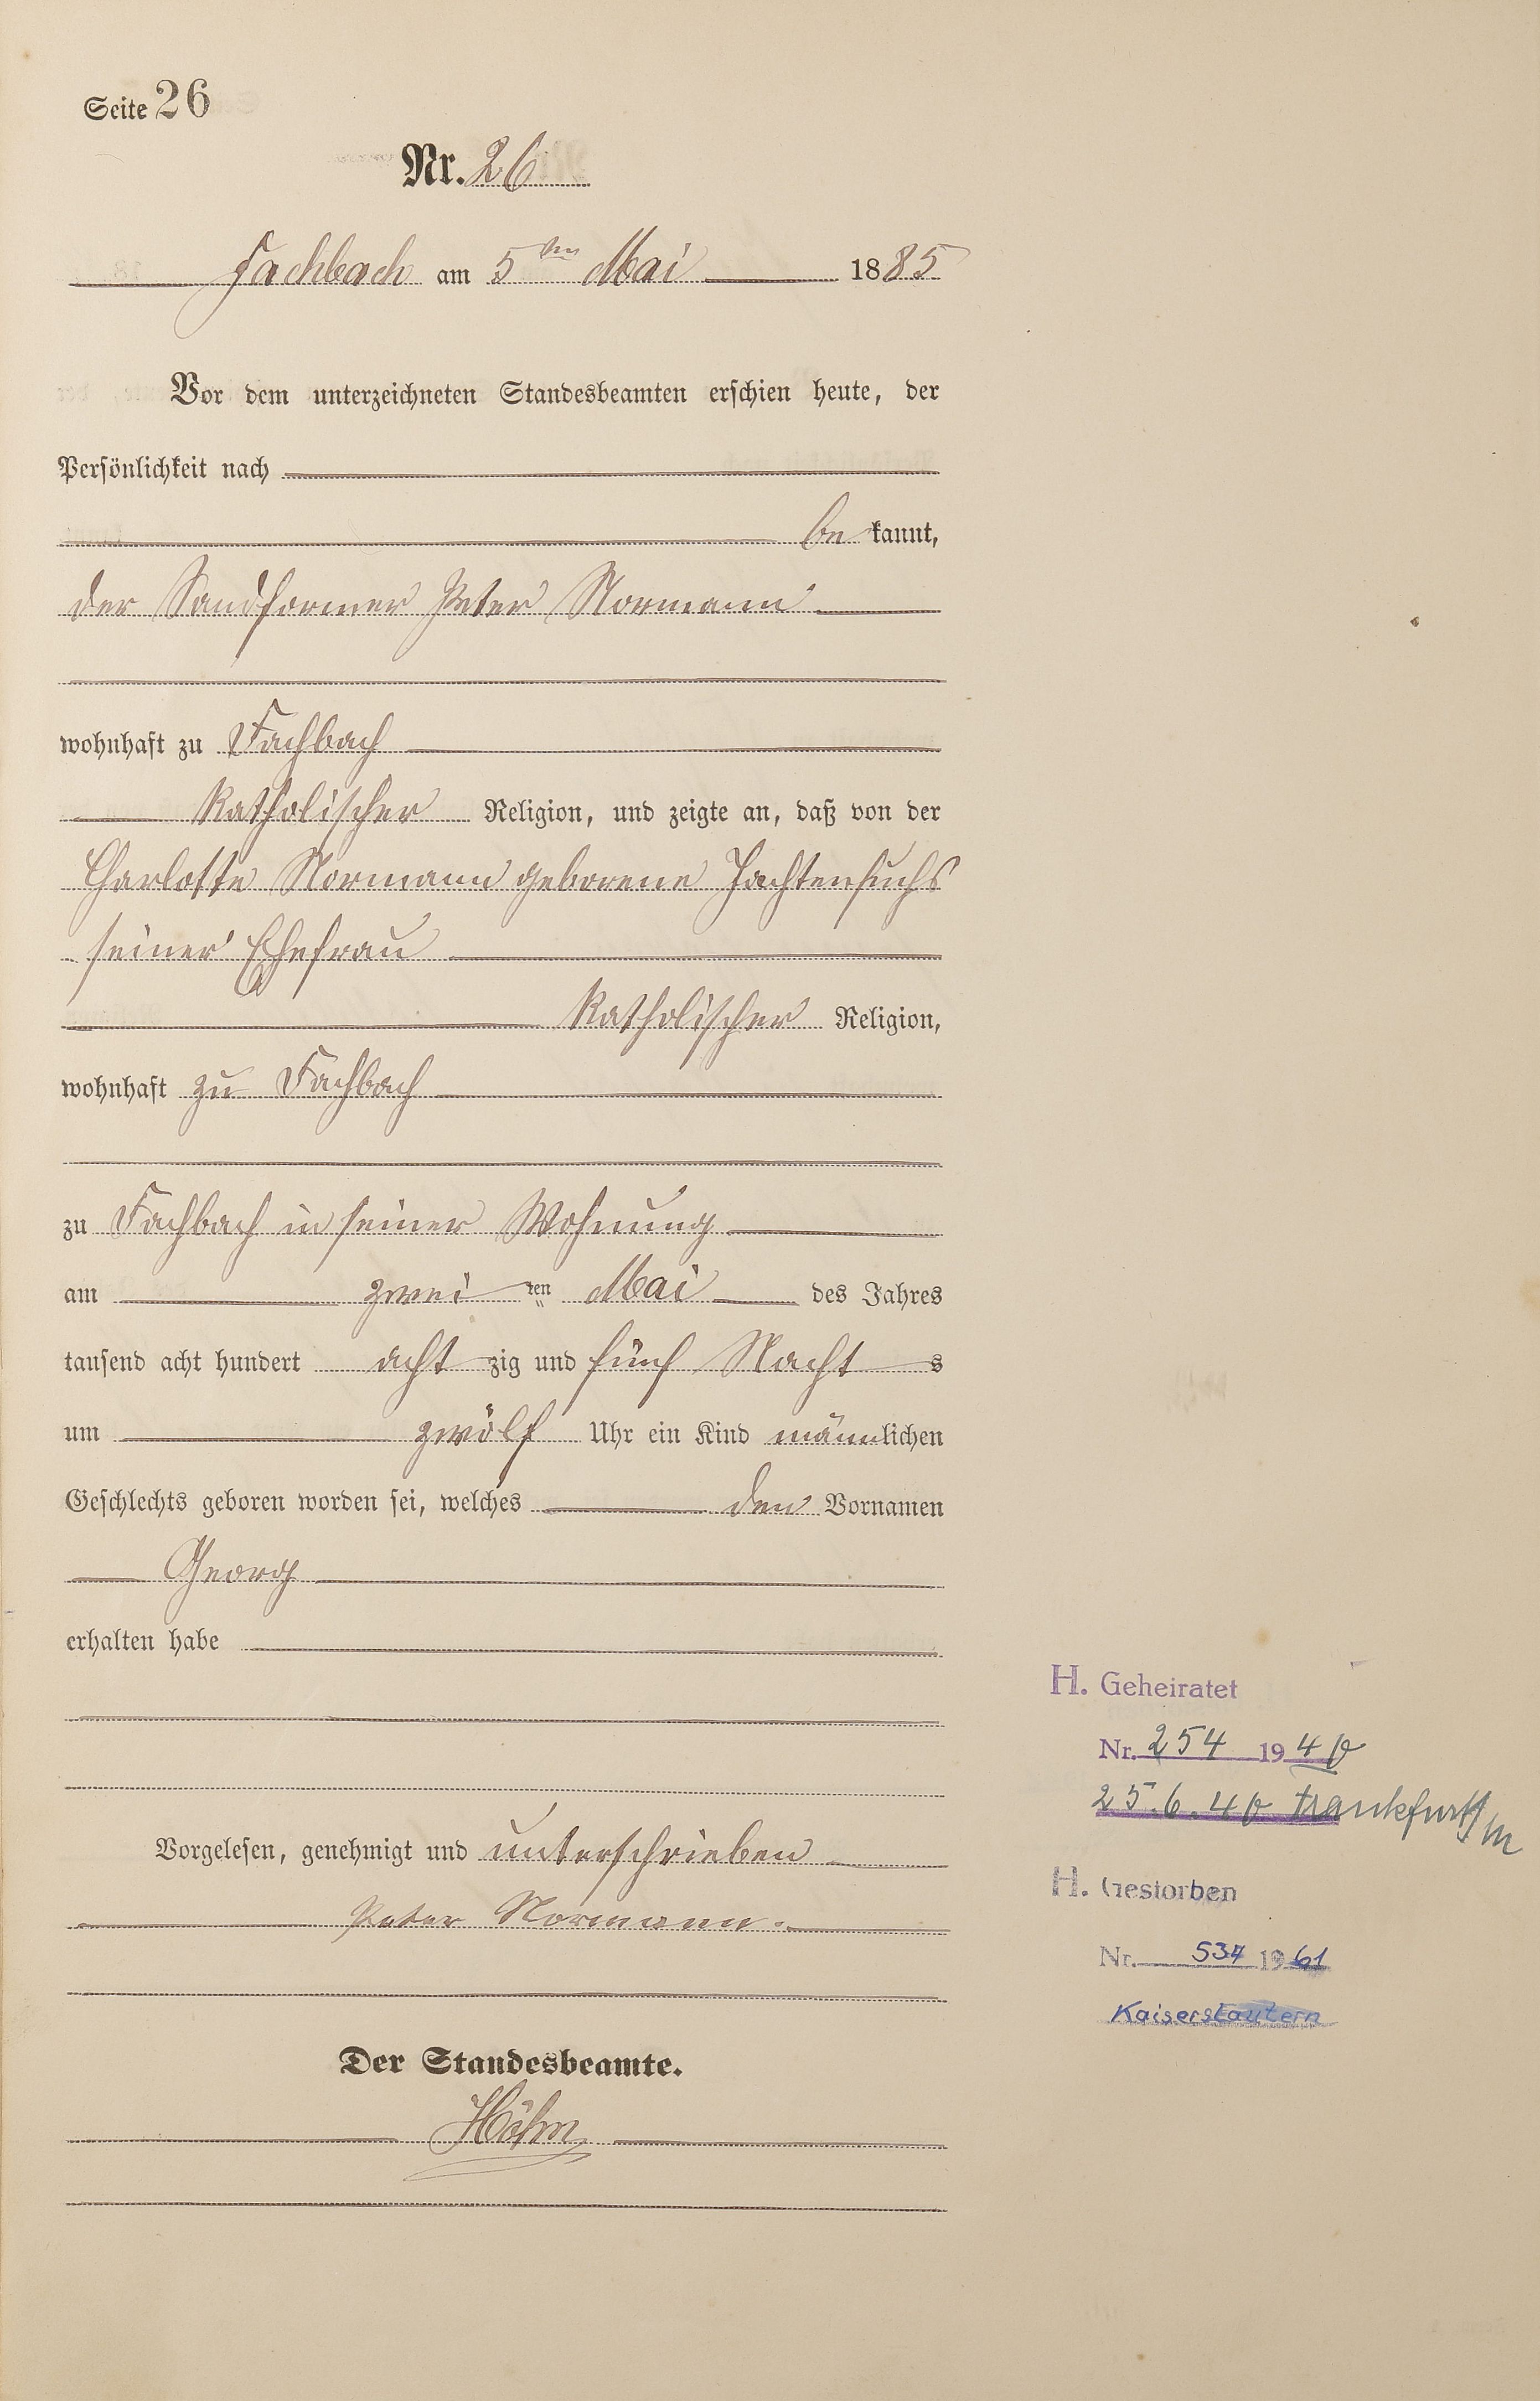 Seite 26
Nr. 26
Fachbach am 5ten Mai 1885
Vor dem unterzeichneten Standesbeamten erschien heute, der
Persönlichkeit nach
be kannt,
der Sandformer Peter Normann
wohnhaft zu Fachbach
Katholischer Religion, und zeigte an, daß von der
Charlotte Normann geborene Fachtenfuchs
seiner Ehefrau
Katholischer Religion,
wohnhaft zu Fachbach
zu Fachbach in seiner Wohnung
am zwei ten Mai des Jahres
tausend acht hundert acht zig und fünf Nacht s
um zwölf Uhr ein Kind männlichen
Geschlechts geboren worden sei, welches den Vornamen
Georg
erhalten habe
Vorgelesen, genehmigt und unterschrieben
Peter Normann.
Der Standesbeamte.
Höhn
H. Geheiratet
Nr. 254 1940
25.6.40 Frankfurt/M
H. Gestorben
Nr. 534 1961
Kaiserslautern